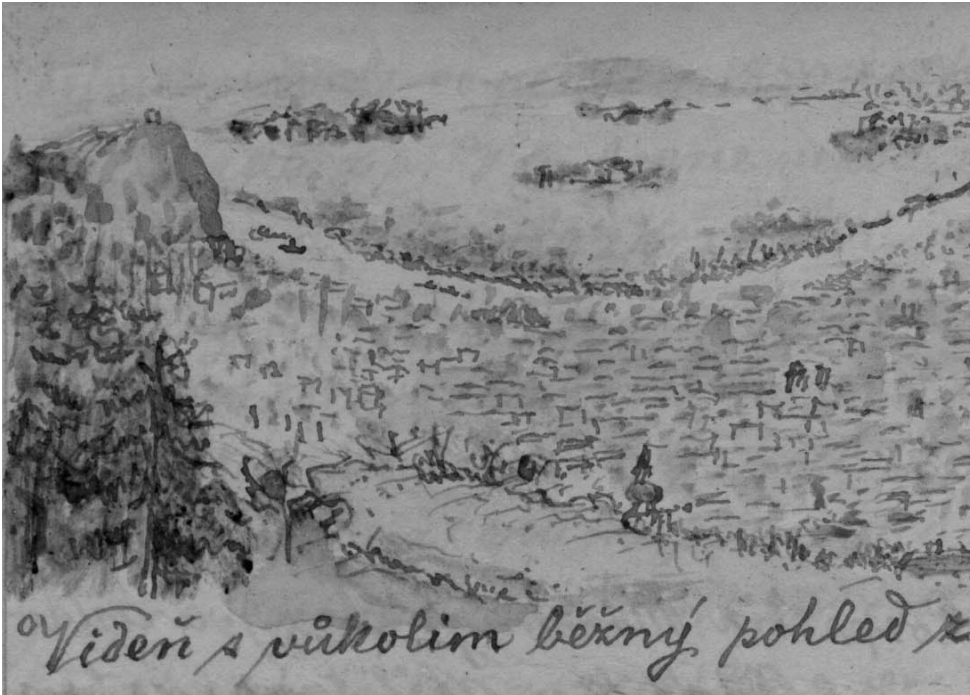 Videň s vůkolim běžný pohled z